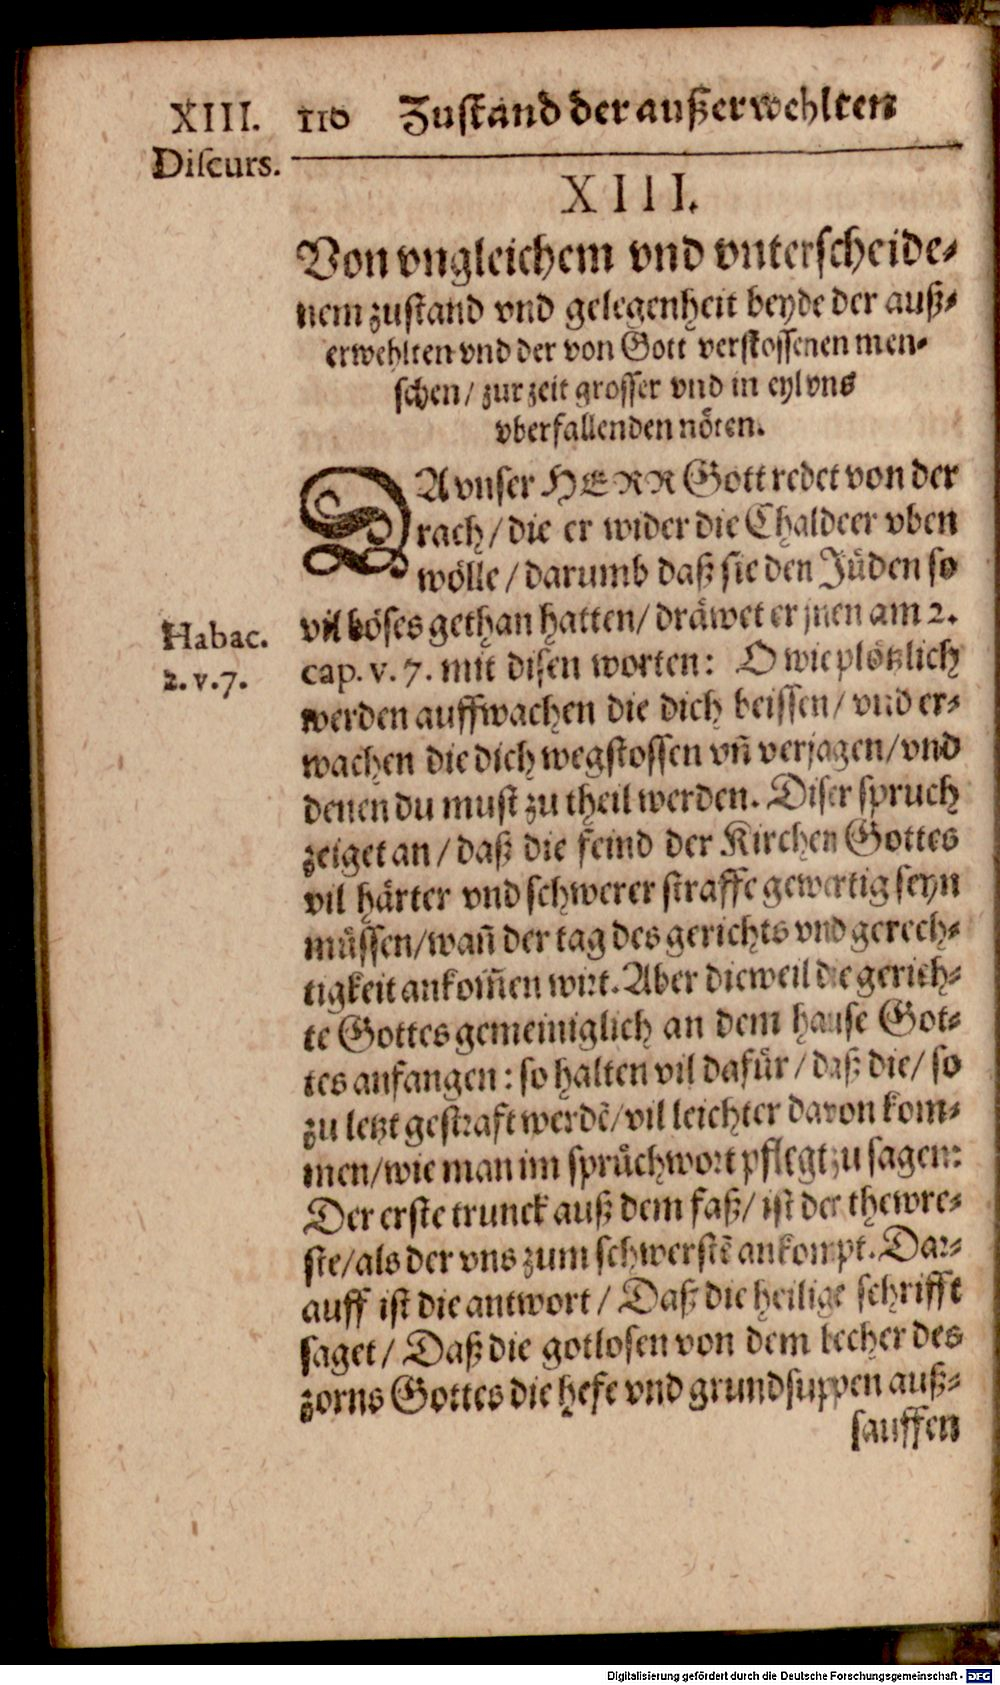 XIII. 110 Zustand der außerwehlten
Discurs.
XIII.
Von vngleichem vnd vnterscheide-
nem zustand vnd gelegenheit beyde der auß-
erwehlten vnd der von Gott verstossenen men-
schen / zur zeit grosser vnd in eyl vns
vberfallenden nöten.
DA vnser HERR Gott redet von der
rach / die er wider die Chaldeer vben
wölle / darumb daß sie den Jüden so
vil böses gethan hatten / dräwet er jnen am 2.
Habac.
cap. v. 7. mit disen worten: O wie plötzlich
2. v. 7.
werden auffwachen die dich beissen / vnd er-
wachen die dich wegstossen vñ verjagen / vnd
denen du must zu theil werden. Diser spruch
zeiget an / daß die feind der Kirchen Gottes
vil härter vnd schwerer straffe gewertig seyn
müssen / wañ der tag des gerichts vnd gerech-
tigkeit ankom̃en wirt. Aber dieweil die gerich-
te Gottes gemeiniglich an dem hause Got-
tes anfangen: so halten vil dafür / daß die / so
zu letzt gestraft werdẽ / vil leichter davon kom-
men / wie man im sprüchwort pflegt zu sagen:
Der erste trunck auß dem faß / ist der thewre-
ste / als der vns zum schwerstẽ ankompt. Dar-
auff ist die antwort / Daß die heilige schrifft
saget / Daß die gotlosen von dem becher des
zorns Gottes die hefe vnd grundsuppen auß-
sauffen
Digitalisierung gefördert durch die Deutsche Forschungsgemeinschaft - DFG